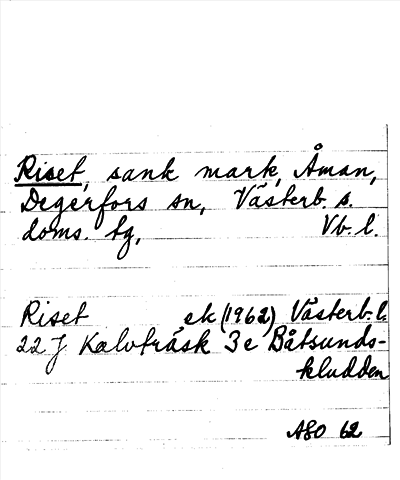 Riset, sank mark, Åman,
Degerfors sn, Västerb. s.
doms. tg, Vb. l.
Riset ek (1962) Västerb. l.
22 J Kalvträsk 3e Båtsunds-
kludden
ASO 62